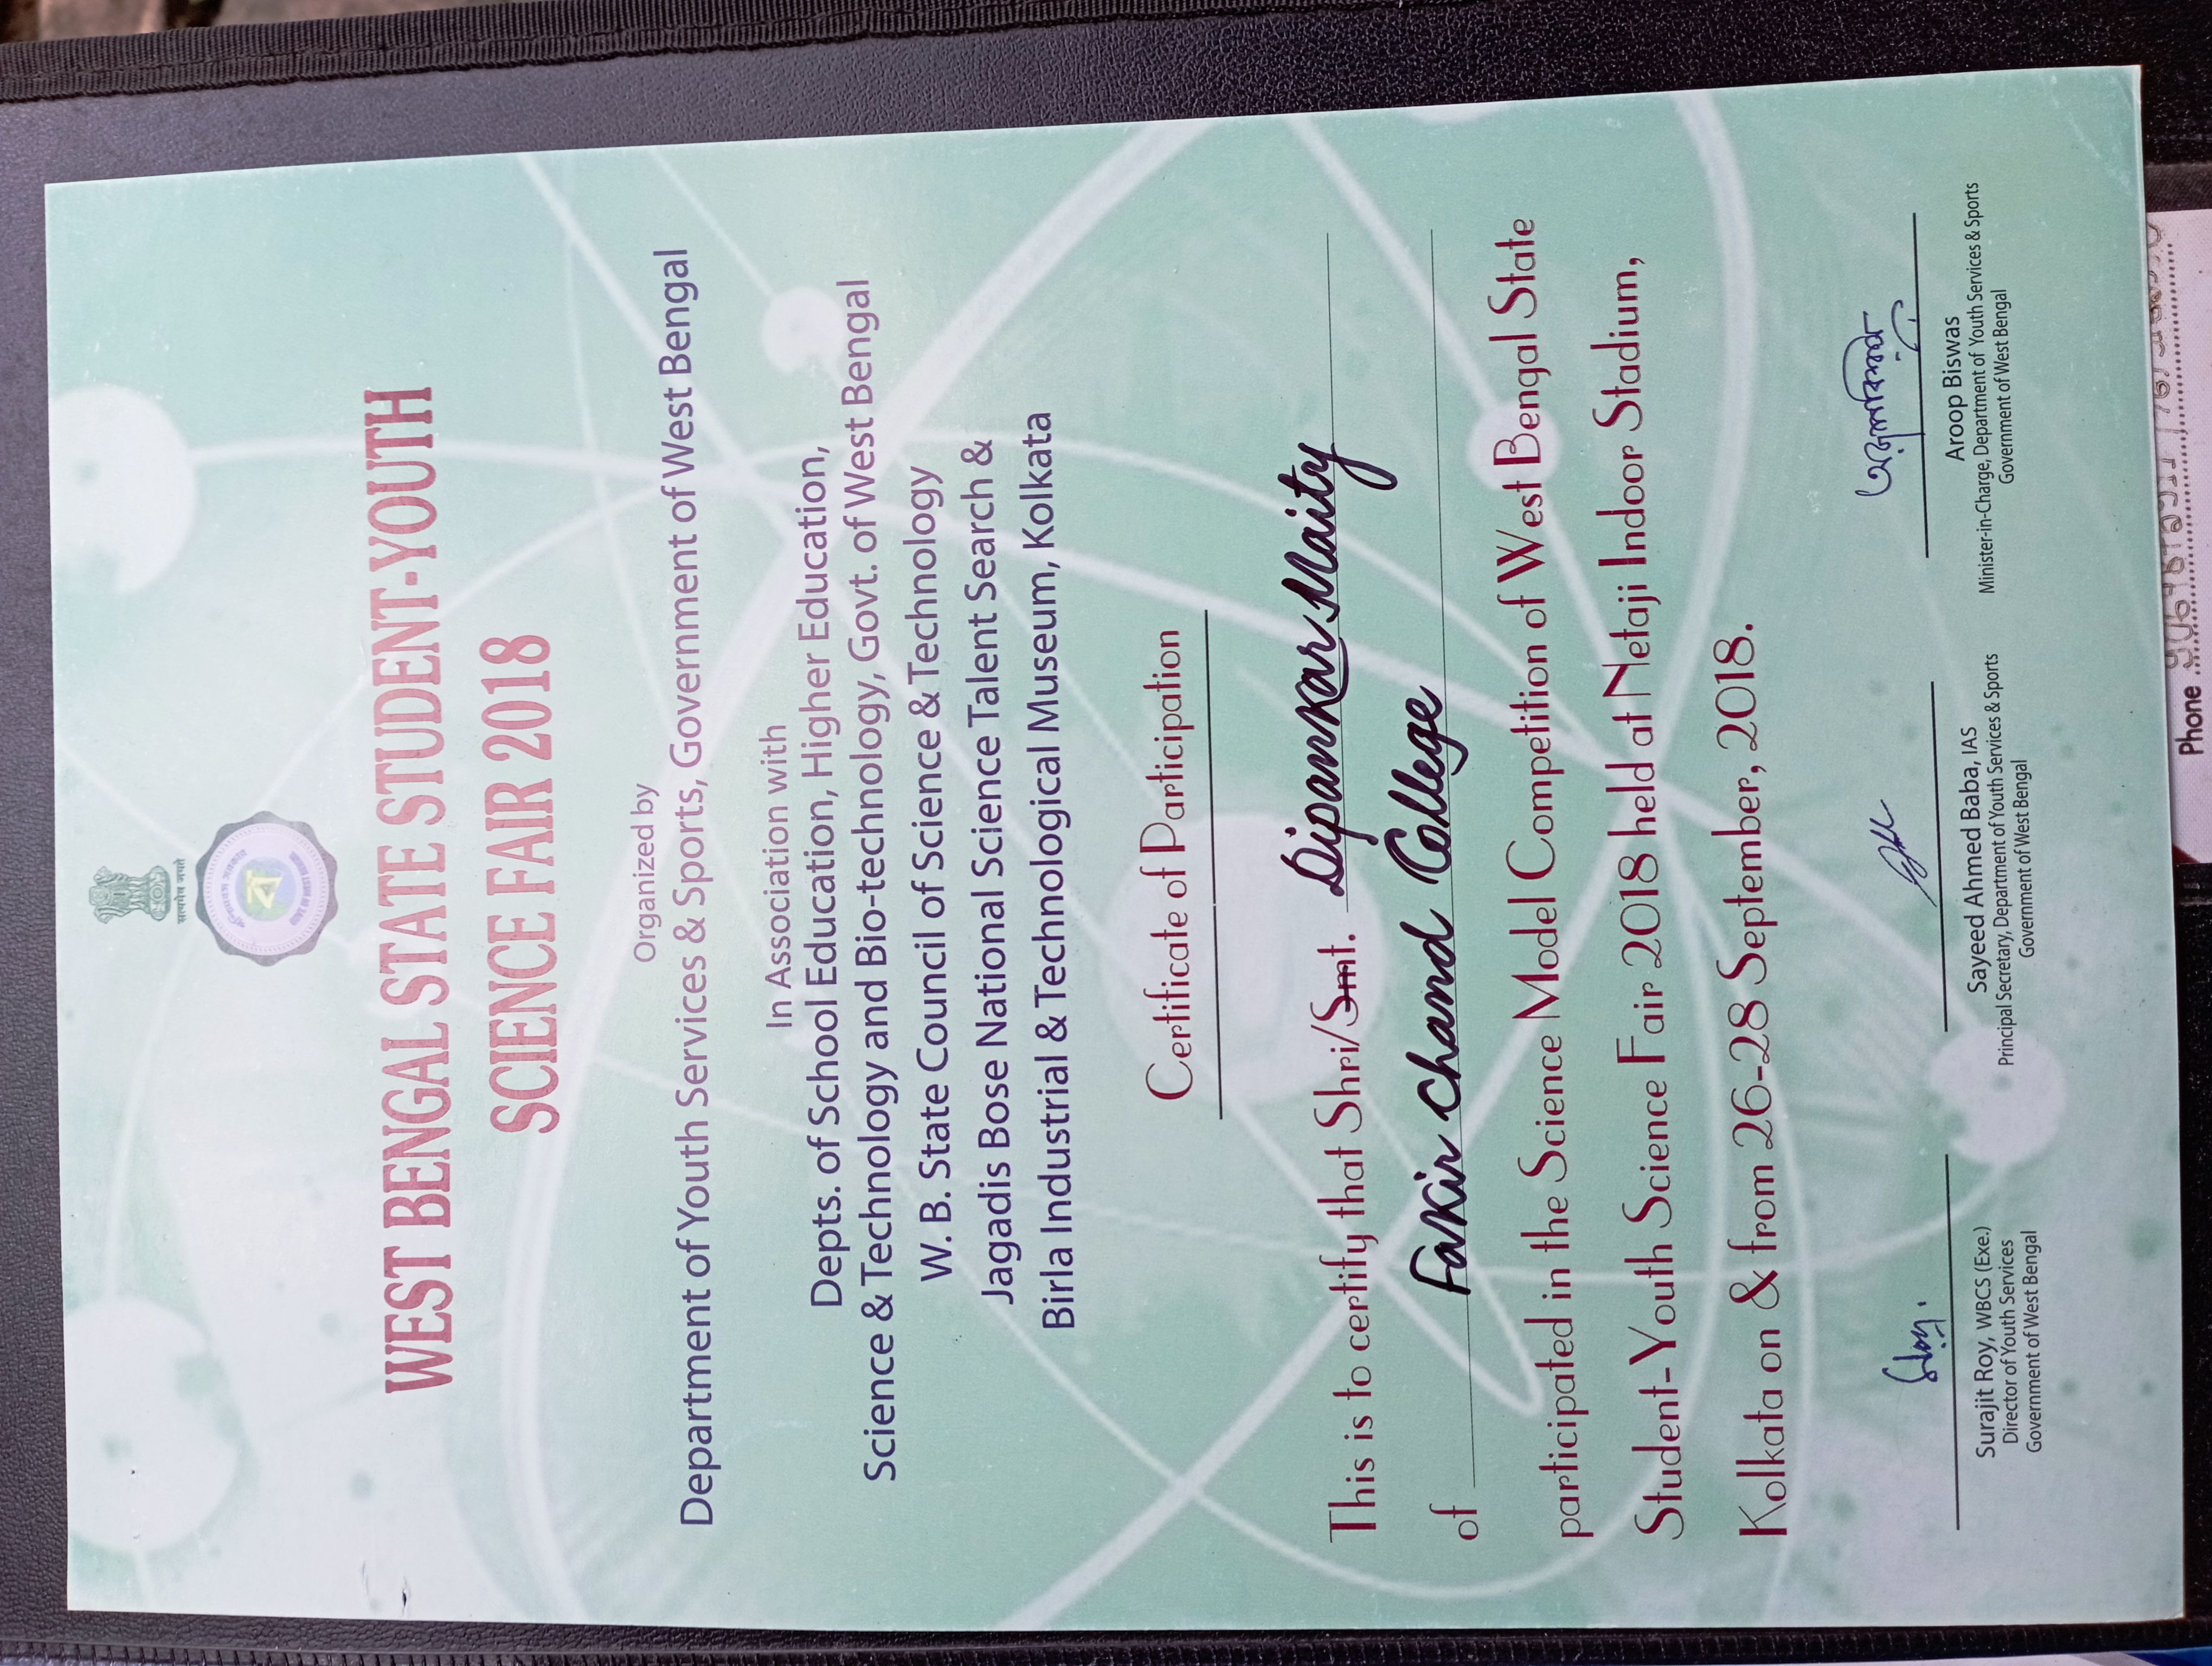 सत्यमेव जयते
পশ্চিমবঙ্গ সরকার
ব
GOVT. OF WEST BENGAL
WEST BENGAL STATE STUDENT-YOUTH
SCIENCE FAIR 2018
Organized by
Department of Youth Services & Sports, Government of West Bengal
In Association with
Depts. of School Education, Higher Education,
Science & Technology and Bio-technology, Govt. of West Bengal
W. B. State Council of Science & Technology
Jagadis Bose National Science Talent Search &
Birla Industrial & Technological Museum, Kolkata
Certificate of Participation
This is to certify that Shri/Smt. Dipankar Maity
of Fakir Chand College
participated in the Science Model Competition of West Bengal State
Student-Youth Science Fair 2018 held at Netaji Indoor Stadium,
Kolkata on & from 26-28 September, 2018.
Surajit Roy, WBCS (Exe.)
Director of Youth Services
Government of West Bengal
Sayeed Ahmed Baba, IAS
Principal Secretary, Department of Youth Services & Sports
Government of West Bengal
অরূপ বিশ্বাস
Aroop Biswas
Minister-in-Charge, Department of Youth Services & Sports
Government of West Bengal
Phone